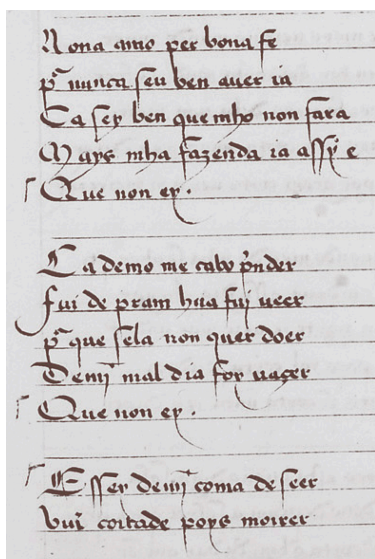 Nona amo per bona fe
pᵉ nunca seu ben auer ia
Ca sey ben que mho non fara
Mays mha fazenda ia assy e
Que non ey.
Ca demo me cabo p̃nder
fui de pram hũa fuy ueer
pᵉ que sela non quer doer
Demĩ mal dia foy naçer
Que non ey.
E ssey demĩ coma de seer
Viuĩ coitade poys moirer